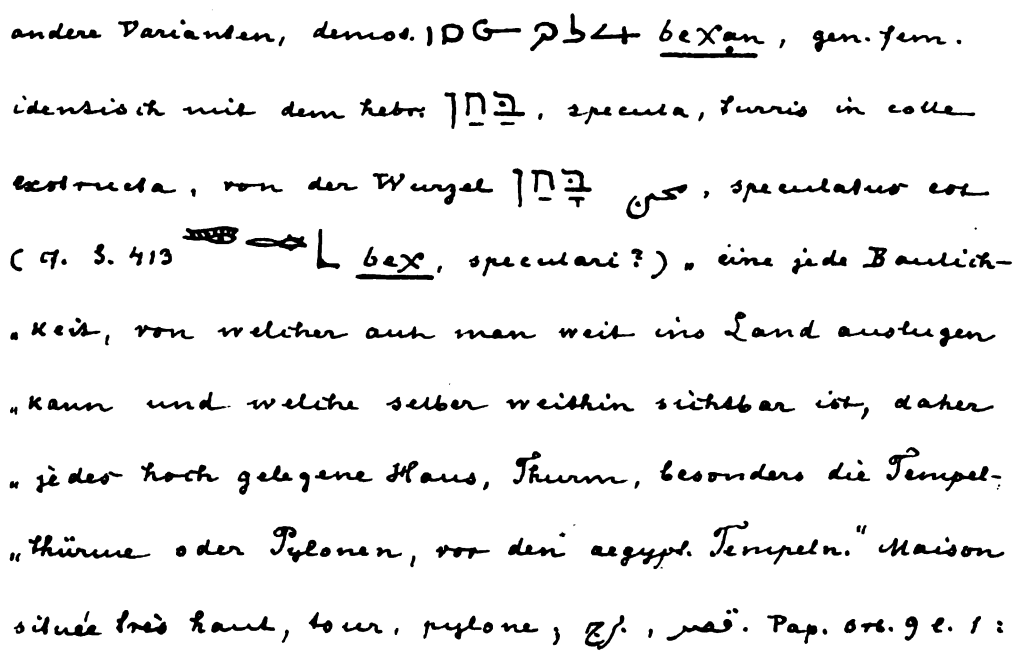 andere Varianten, demot. beχạn, gen. fem.
identisch mit dem hebr. בַּחַן, specula, turris in colle
exstructa, von der Wurzel בָּחַן, speculatus est
(cf. S. 413 beχ, speculari?) „eine jede Baulich-
„keit, von welcher aus man weit ins Land auslugen
„kann und welche selber weithin sichtbar ist, daher
„jedes hoch gelegene Haus, Thurm, besonders die Tempel-
„thürme oder Pylonen, vor den aegypt. Tempeln." Maison
située très haut, tour, pylone; برج, قصر. Pap. Orb. 9 l. 1: